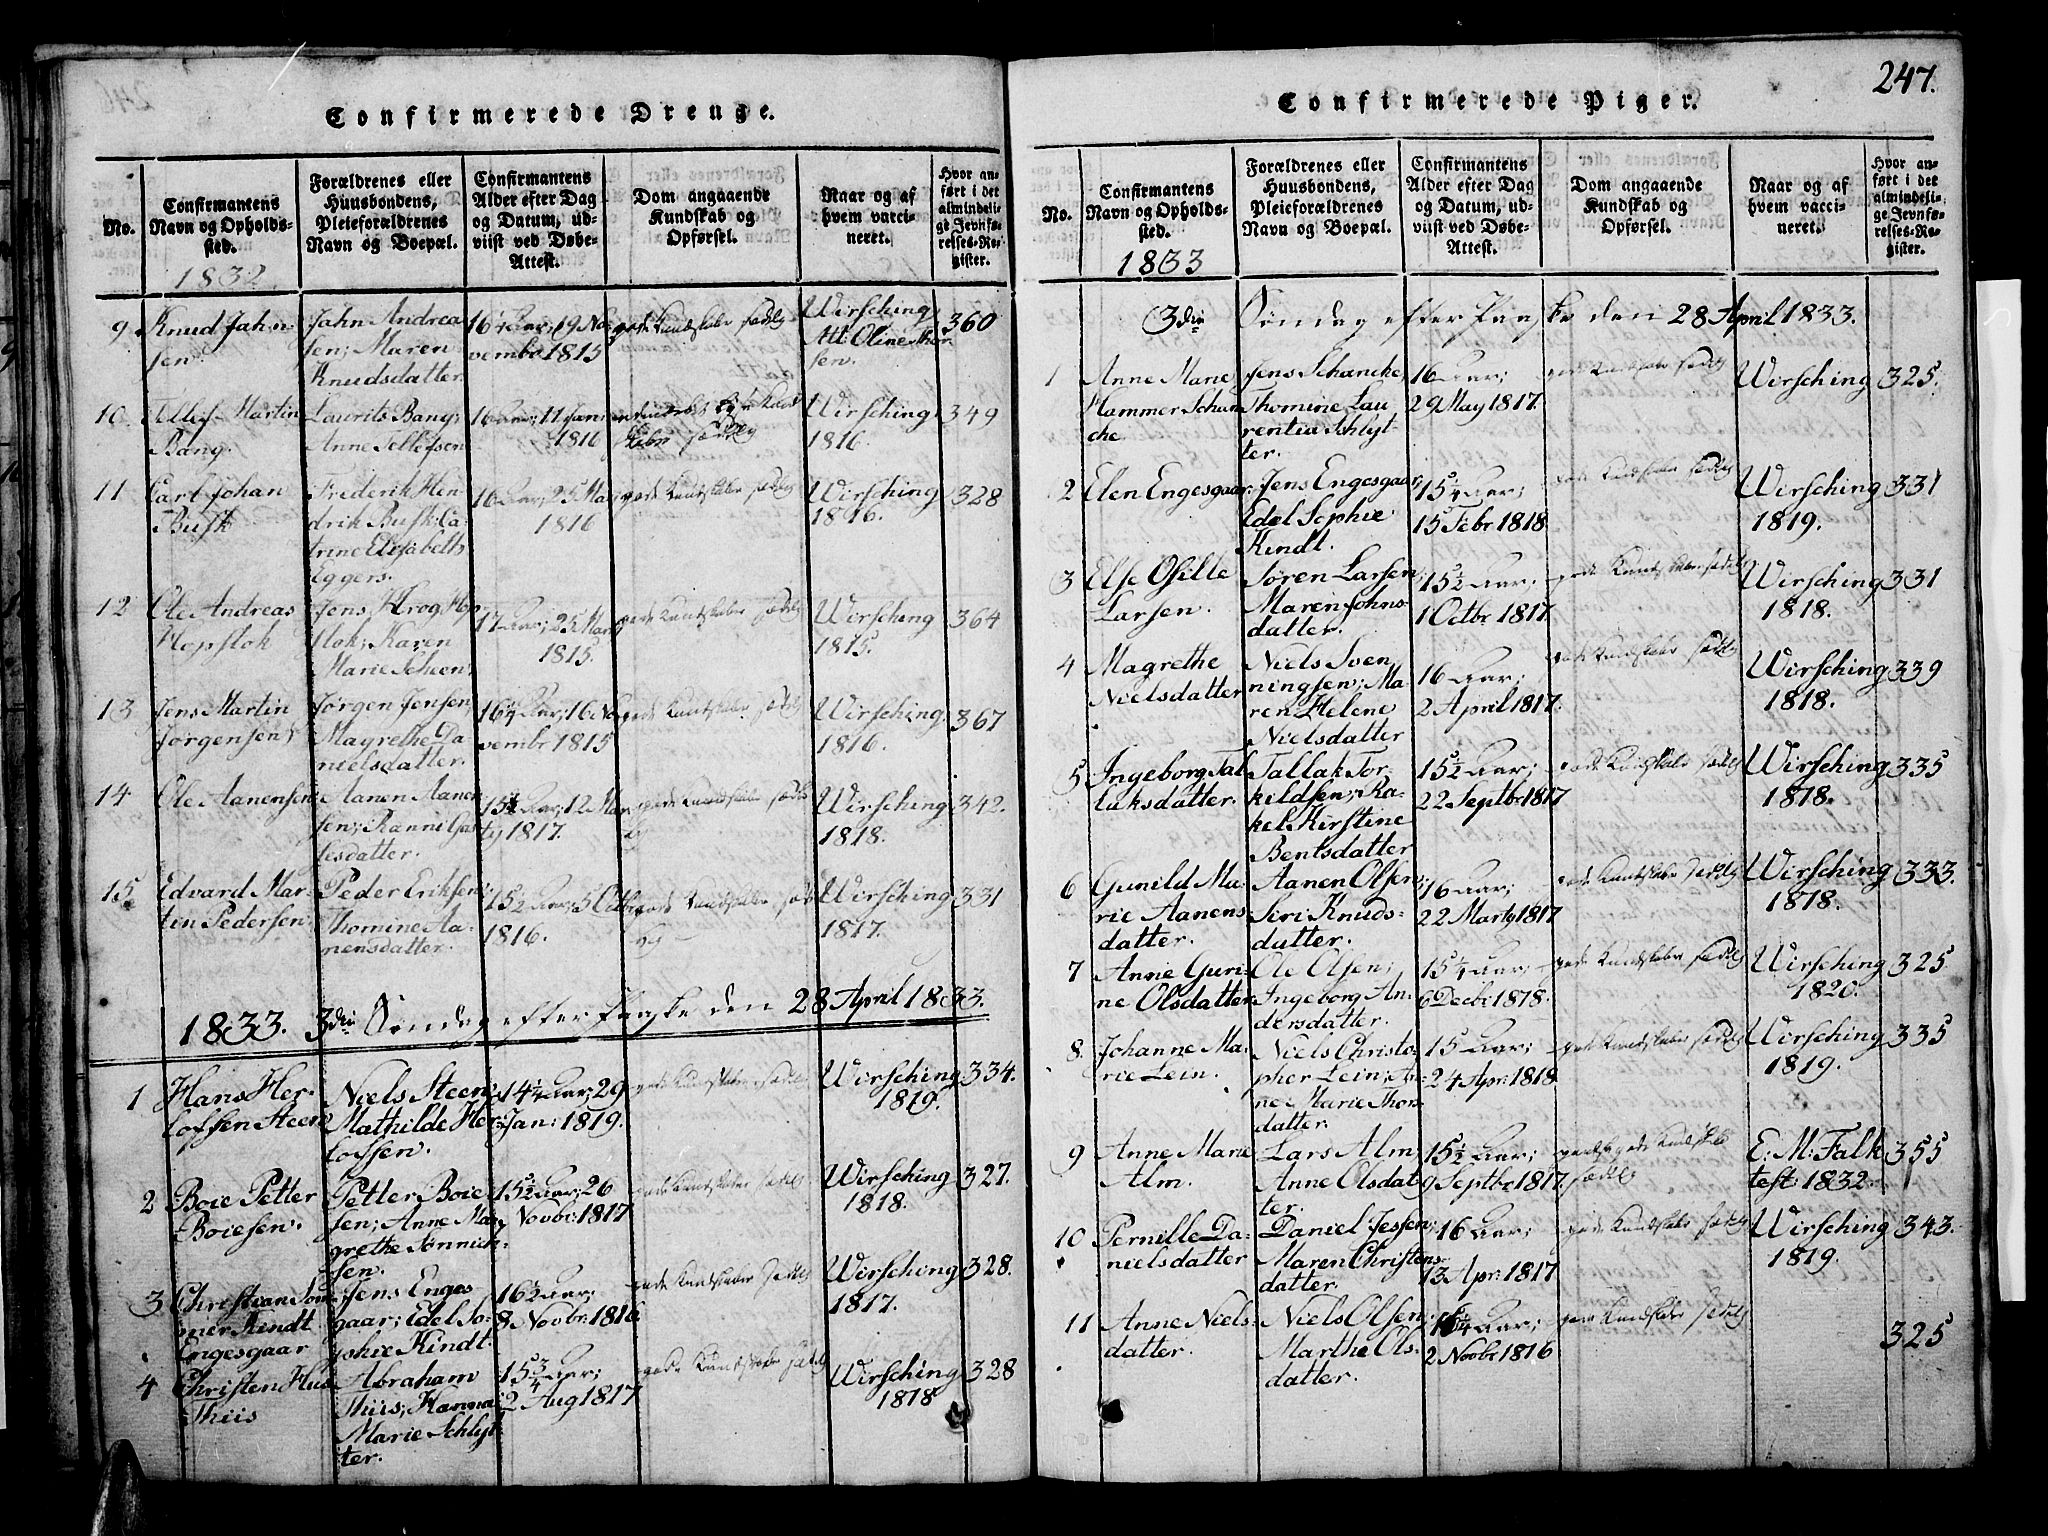 Confirmerede Drenge.
No.
Confirmantens
Navn og Opholds-
sted.
1832
Forældrenes eller
Huusbondens,
Pleieforældrenes
Navn og Boepæl.
Confirmantens
Alder efter Dag
og Datum, ud-
viist ved Døbe-
Attest.
Dom angaaende
Kundskab og
Opførsel.
Naar og af
hvem vacci-
neret.
Hvor an-
ført i det
almindeli-
ge Jevnfø-
relses-Re-
gister.
9 Knud Jahn
sen.
Jahn Andrea
sen; Maren
Knudsdatter.
16 1/4 Aar; 19 No
vembr 1815
gode Kundskaber sædelig
Wirsching
Att: Oline Thor
sen.
360
10 Tellef Martin
Bang.
Laurits Bang;
Anne Tellefsen
16 Aar; 11 Jan:
1816
sædelig
Wirsching
1816.
349
11 Carl Johan
Busk
Frederik Hen
drik Busk; Ca
trine Elisabeth
Eggers.
16 Aar; 25 Mar
1816
gode Kundskaber sædelig
Wirsching
1816.
328
12 Ole Andreas
Hopstok
Jens Krog Hop
stok; Karen
Marie Scheen
17 Aar; 25 Mart
1815.
gode Kundskaber sædelig
Wirsching
1815.
364
13 Jens Martin
Jørgensen
Jørgen Jensen
Magrethe Da
nielsdatter.
16 1/4 Aar; 16 No
vembr 1815
gode Kundskaber sædelig
Wirsching
1816.
367
14 Ole Aanensen
Aanen Aanen
sen; Ranni Gas
sesdatter.
Aar; 12 Mar
ty 1817.
gode Kundskaber sæde
lig
Wirsching
1818.
342.
15 Edvard Mar
tin Pedersen
Peder Eriksen;
Thomine Aa-
nensdatter.
15 1/2 Aar; 5 Octbr
1816.
gode Kundskaber sæde
lig
Wirsching
1817.
331
1833. 3die Søndag efter Paaske den 28 April 1833.
1 Hans Her
lofsen Steen
Niels Steen;
Mathilde Her
lofsen.
14 1/4 Aar; 29
Jan: 1819.
gode Kundskaber sædelig
Wirsching
1819.
334.
2 Boie Petter
Boiesen.
Petter Boie
sen; Anne Ma
grethe Sønnich-
sen.
15 1/2 Aar; 26
Novbr: 1817
gode Kundskaber sædelig
Wirsching
1818.
327.
3 Christian Som
mer Kindt
Engesgaar
Jens Enges
gaar; Edel So-
phie Kindt.
16 1/2 Aar;
8 Novbr: 1816
gode Kundskaber sædelig
Wirsching
1817.
328.
4 Christen Hus
Thiis
Abraham
Thiis; Hanna
Marie Schlyt
ter.
15 3/4 Aar;
2 Aug 1817
gode Kundskaber sædelig
Wirsching
1818
328
247.
Confirmerede Piger.
No.
Confirmantens
Navn og Opholds-
sted.
1833
Forældrenes eller
Huusbondens,
Pleieforældrenes
Navn og Boepæl.
Confirmantens
Alder efter Dag
og Datum, ud-
viist ved Døbe-
Attest.
Dom angaaende
Kundskab og
Opførsel.
Naar og af
hvem vacci-
neret.
Hvor an-
ført i det
almindeli-
ge Jevnfø-
relses-Re-
gister.
3die Søndag efter Paaske den 28 April 1833.
1 Anne Marie
Hammer Schan
che
Jens Schancke,
Thomine Lau
rentia Schlyt-
ter.
16 Aar;
29 May 1817.
gode Kundskaber sædelig
Wirsching
325.
2 Elen Engesgaar
Jens Engesgaar,
Edel Sophie
Kindt.
15 1/4 Aar;
15 Febr 1818
gode Kundskaber sædelig
Wirsching
1819.
331
3 Else Osille
Larsen.
Søren Larsen,
Maren Johns-
datter.
15 1/2 Aar;
1 Octbr 1817
gode Kundskaber sædelig
Wirsching
1818.
331
4 Magrethe
Nielsdatter
Niels Sven
ningsen; Ma
ren Helene
Nielsdatter
16 Aar;
2 April 1817.
gode Kundskaber sædelig
Wirsching
1818.
339
5 Ingeborg Tal
laksdatter.
Tallak Tor-
kildsen; Ra-
kel Kirstine
Bentsdatter
15 1/2 Aar;
22 Septbr: 1817
gode Kundskaber sædelig
Wirsching
1818.
335
6 Gunild Ma-
rie Aanens
datter.
Aanen Olsen;
Siri Knuds-
datter.
16 Aar;
22 Marty 1817
gode Kundskaber sædelig
Wirsching
1818.
333.
7 Anne Guri-
ne Olsdatter
Ole Olsen;
Ingeborg An-
dersdatter.
15 1/4 Aar;
6 Decbr 1818.
gode Kundskaber sædelig
Wirsching
1820.
325
8. Johanne Ma-
rie Lein.
Niels Christo-
pher Lein; An-
ne Marie Thor
datter.
15 Aar;
24 Apr: 1818
gode Kundskaber sædelig
Wirsching
1819.
335
9 Anne Marie
Alm.
Lars Alm,
Anne Olsdat
ter.
15 1/2 Aar;
9 Septbr 1817.
gode Kundskab
sædelig
E: M: Falk
test: 1832.
355
10 Pernille Da-
nielsdatter
Daniel Jessen;
Maren Christens
datter.
16 Aar;
13 Apr: 1817
gode Kundskaber sædelig
Wirsching
1819.
343.
11 Anne Niels-
datter.
Niels Olsen
Marthe Ols-
datter.
16 1/4 Aar;
2 Novbr 1816
gode Kundskaber sædelig
325